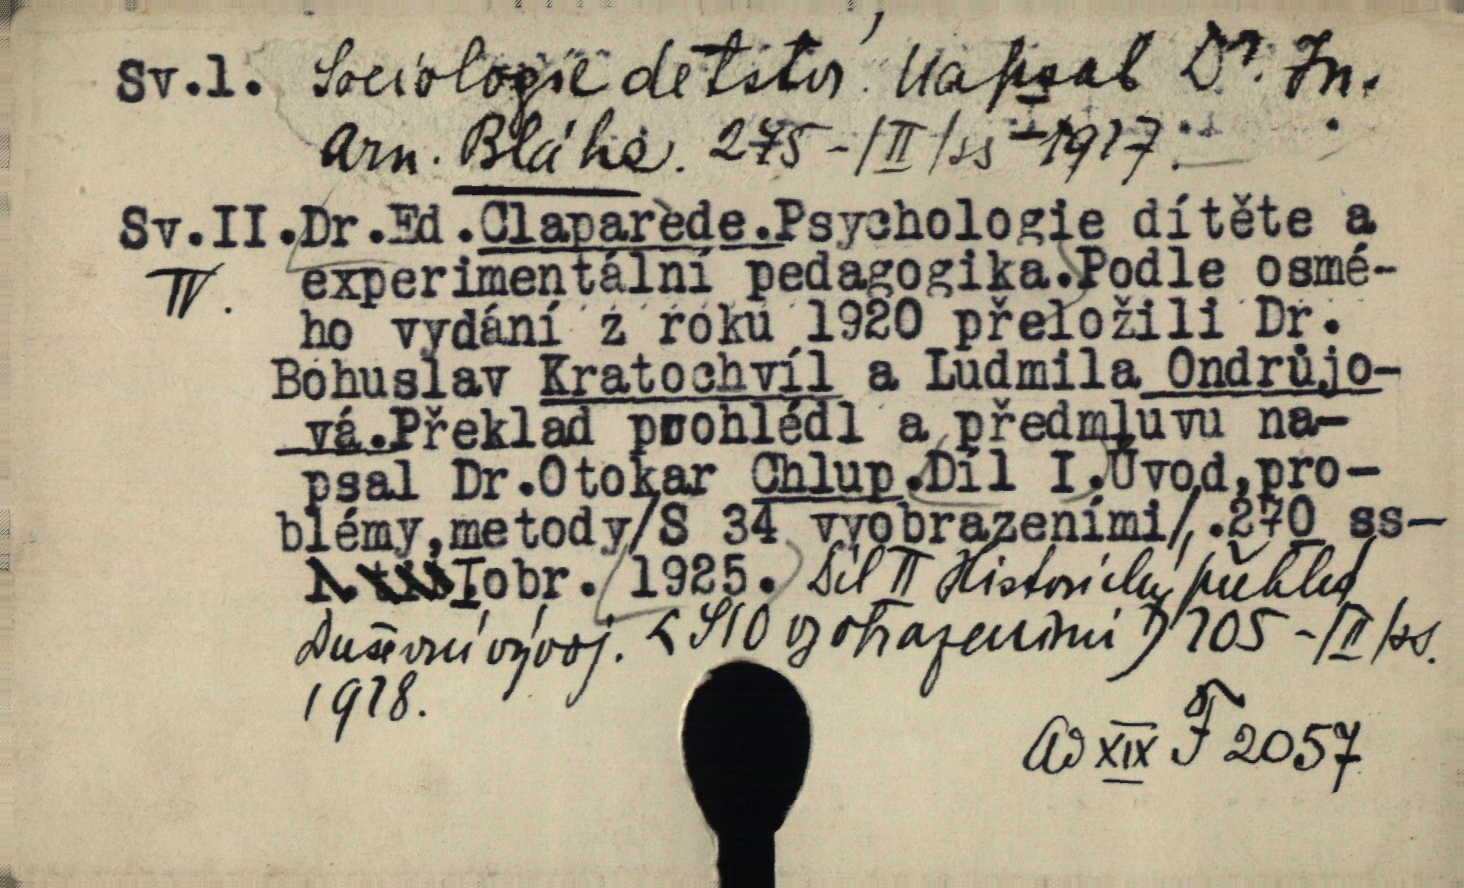 Sv.l. Sociologie dětství. Napsal Dr. In.
Arn. Bláha. 275-/II/ss-1927.
Sv.II.Dr.Ed.Claparède.Psychologie dítěte a
IV. experimentální pedagogika.Podle osmé-
ho vydání z roku 1920 přeložili Dr.
Bohuslav Kratochvíl a Ludmila Ondrůjo-
vá.Překlad prohlédl a předmluvu na-
psal Dr.Otokar Chlup.Díl I.Úvod,pro-
blémy,metody/S 34 vyobrazeními/.270 ss-
I obr. 1925. Díl II Historický přehled
Duševní vývoj. (S 10 vyobrazeními) 205-/II/ss.
1928.
Ad XIX F 2057